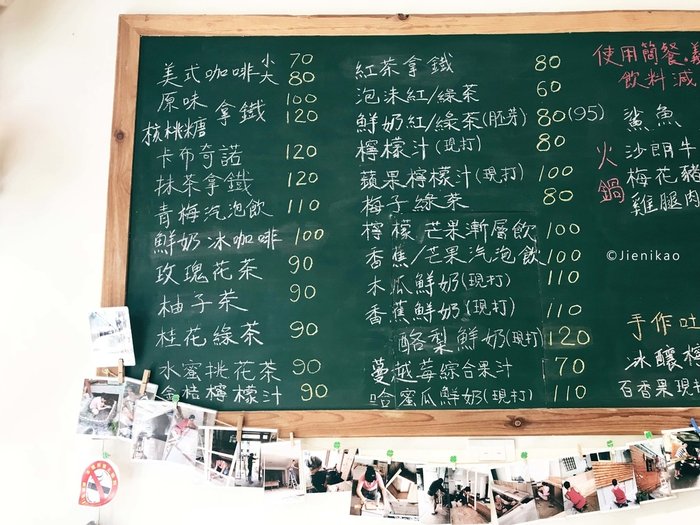 美式咖啡 小 70
大 80
原味 拿鐵 100
核桃糖 120
卡布奇諾 120
抹茶拿鐵 120
青梅汽泡飲 110
鮮奶冰咖啡 100
玫瑰花茶 90
柚子茶 90
桂花綠茶 90
水蜜桃花茶 90
金桔檸檬汁 90
紅茶拿鐵 80
泡沫紅/綠茶 60
鮮奶紅/綠茶(胚芽) 80(95)
檸檬汁(現打) 80
蘋果檸檬汁(現打) 100
梅子綠茶 80
檸檬芒果漸層飲 100
香蕉/芒果汽泡飲 100
木瓜鮮奶(現打) 110
香蕉鮮奶(現打) 110
酪梨鮮奶(現打) 120
蔓越莓綜合果汁 70
哈蜜瓜鮮奶(現打) 110
使用簡餐.義
飲料減
火鍋
鯊魚
沙朗牛
梅花豬
雞腿肉
©Jienikao
手作吐
冰釀檸
百香果現